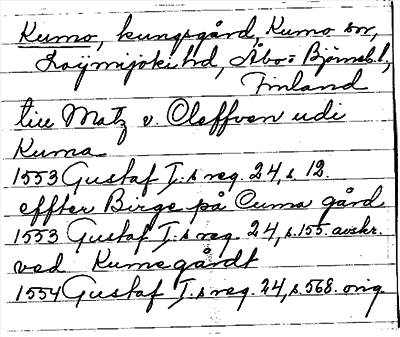 Kumo, kungsgård, Kumo sn,
Loijmijoki hd, Åbo o Björneb. l,
Finland
till Matz v. Cleffven udi
Kuma
1553 Gustaf I:s reg. 24, s. 12.
effter Birge på Cuma gård
1553 Gustaf I:s reg. 24, s. 155. avskr.
ved Kumegårdt
1554 Gustaf I:s reg. 24, s. 568. orig.